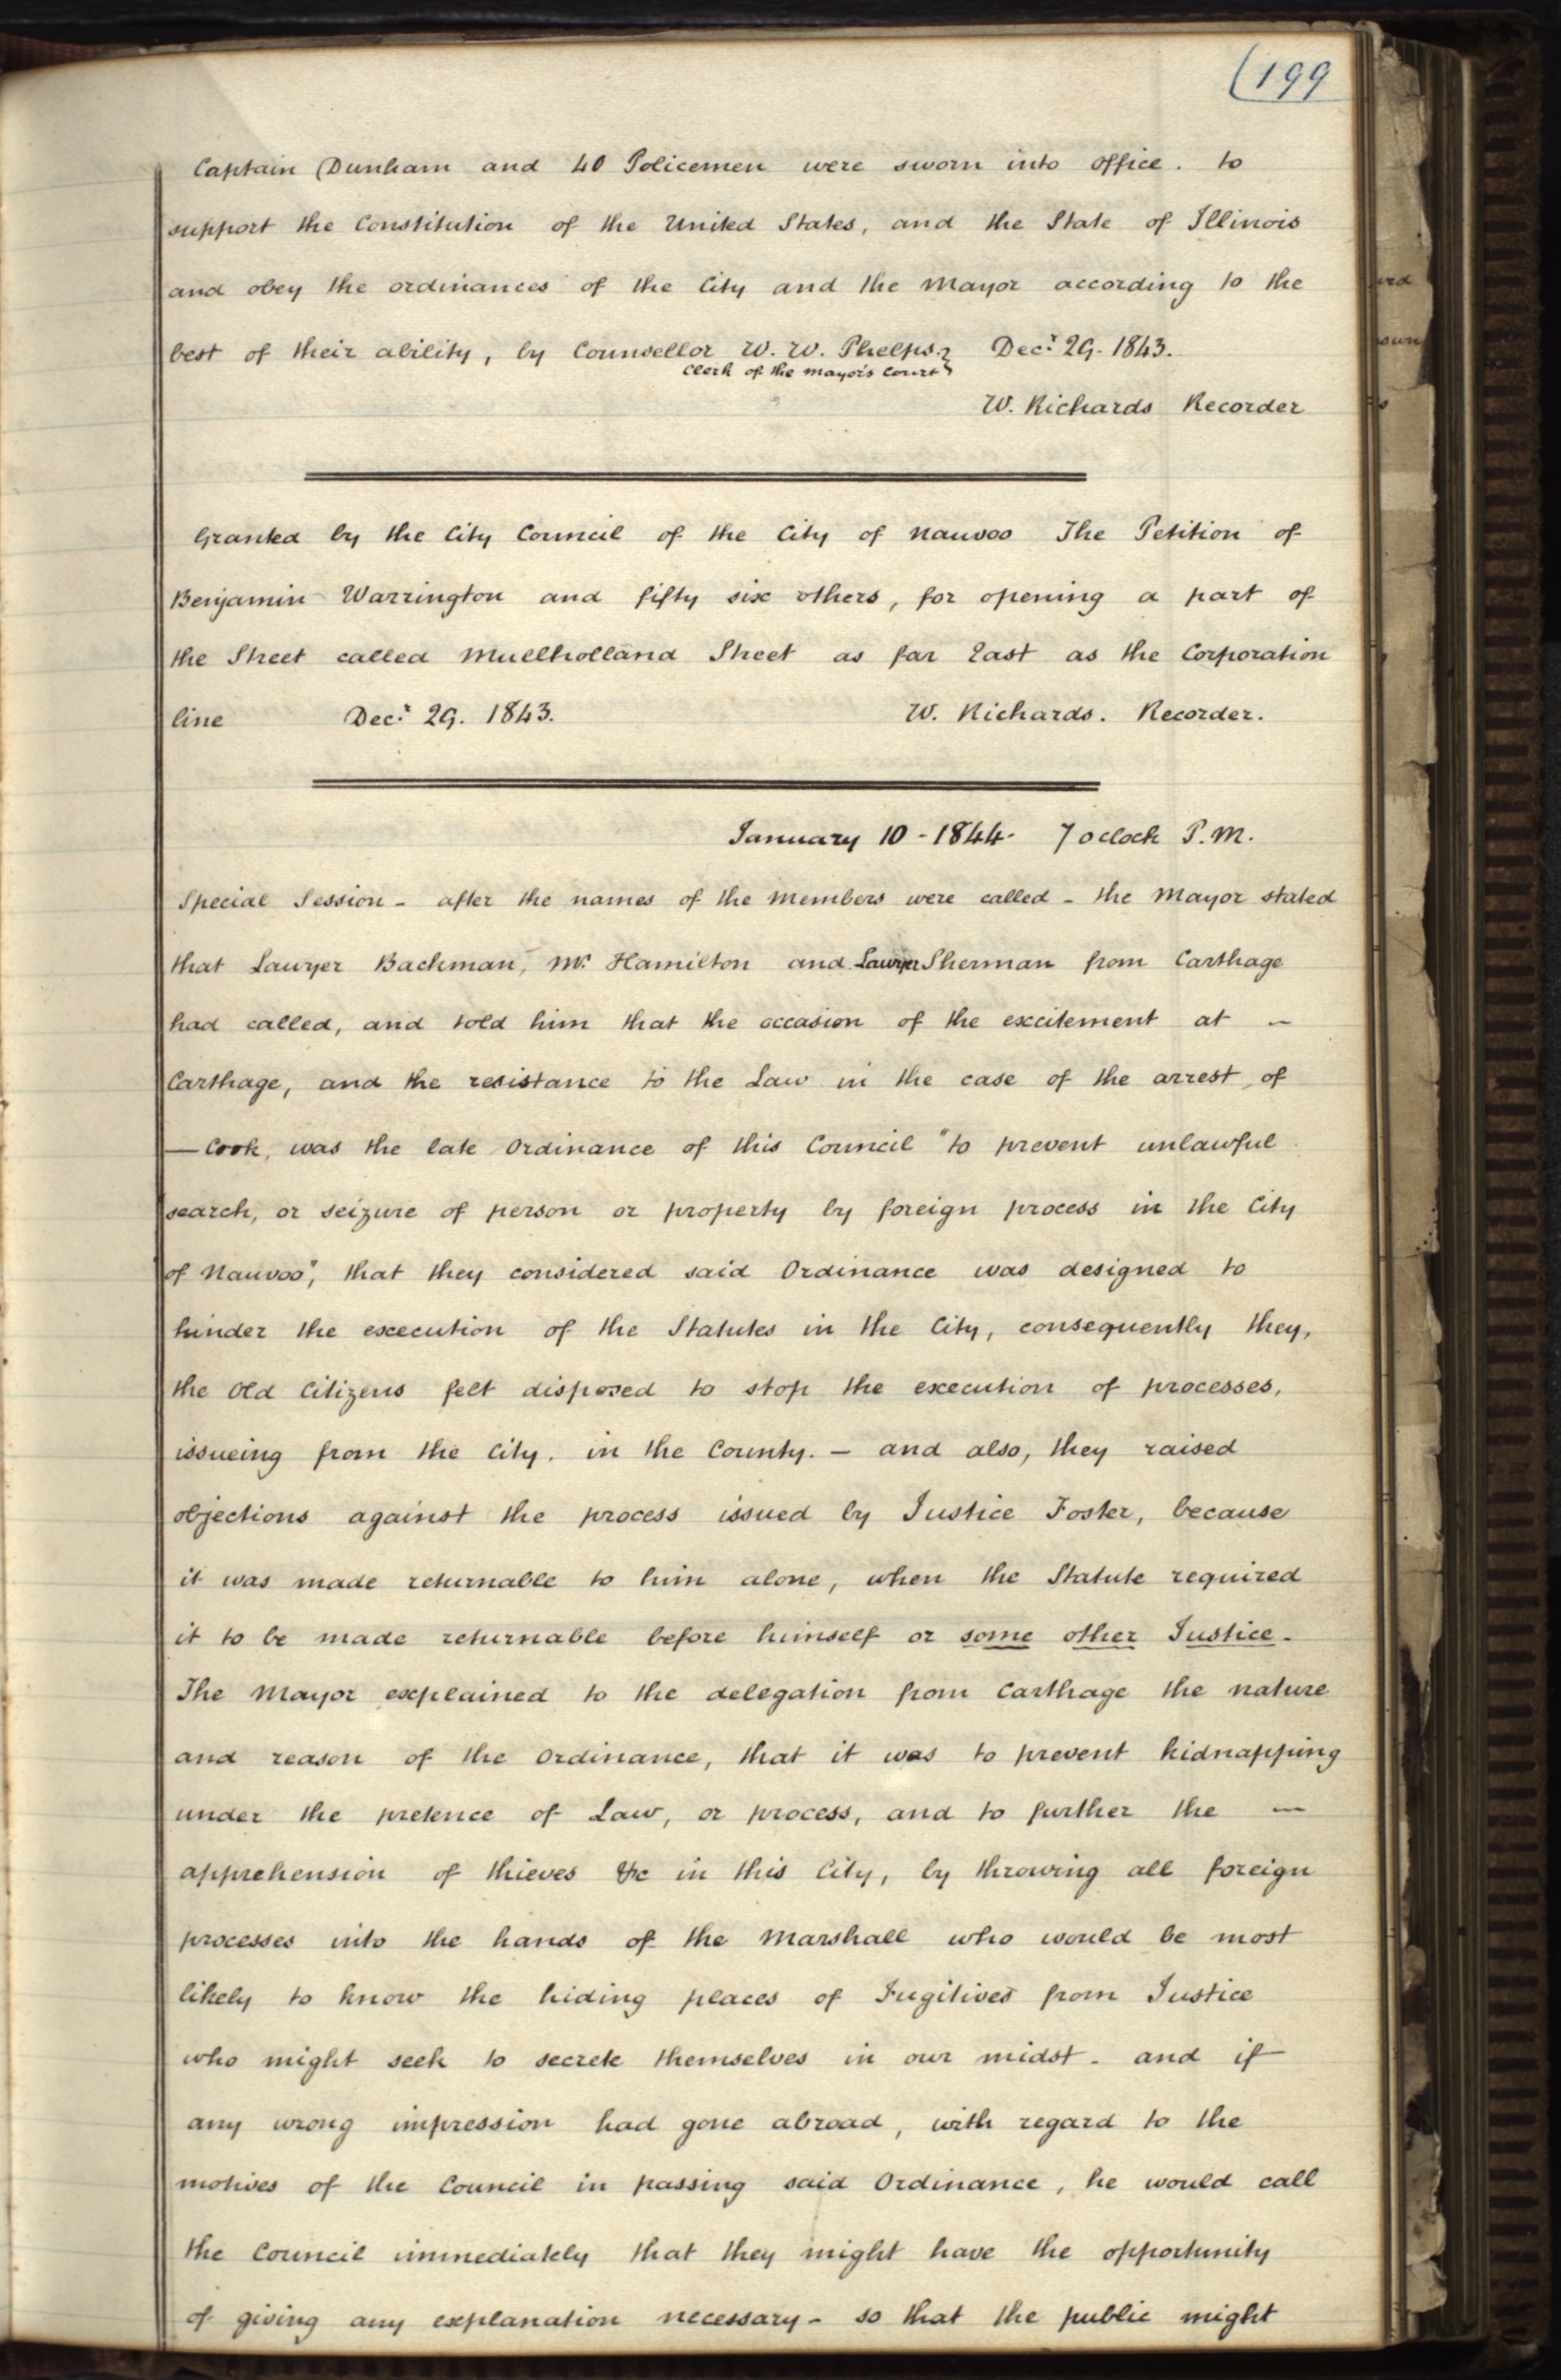 (199
Captain Dunham and 40 Policemen were sworn into office. to
support the Constitution of the United States, and the State of Illinois
and obey the ordinances of the City and the Mayor according to the
best of their ability, by Counsellor W. W. Phelps } Decr. 29. 1843.
Clerk of the Mayor's Court
W. Richards Recorder
Granted by the City Council of the City of Nauvoo The Petition of
Benjamin Warrington and fifty six others, for opening a part of
the Street called Mullholland Street as far East as the Corporation
line Decr. 29. 1843. W. Richards. Recorder.
January 10 - 1844. 7 oclock P.M.
Special Session - after the names of the Members were called - the Mayor stated
that Lawyer Backman, Mr. Hamilton and Lawyer Sherman from Carthage
had called, and told him that the occasion of the excitement at —
Carthage, and the resistance to the Law in the case of the arrest of
— Cook, was the late Ordinance of this Council "to prevent unlawful
search, or seizure of person or property by foreign process in the City
of Nauvoo", that they considered said Ordinance was designed to
hinder the execution of the Statutes in the City, consequently they,
the old Citizens felt disposed to stop the execution of processes,
issueing from the City, in the County. — and also, they raised
objections against the process issued by Justice Foster, because
it was made returnable to him alone, when the Statute required
it to be made returnable before himself or some other Justice.
The Mayor explained to the delegation from Carthage the nature
and reason of the Ordinance, that it was to prevent kidnapping
under the pretence of Law, or process, and to further the —
apprehension of thieves &c in this City, by throwing all foreign
processes into the hands of the Marshall who would be most
likely to know the hiding places of Fugitives from Justice
who might seek to secrete themselves in our midst - and if
any wrong impression had gone abroad, with regard to the
motives of the Council in passing said Ordinance, he would call
the Council immediately that they might have the opportunity
of giving any explanation necessary - so that the public might